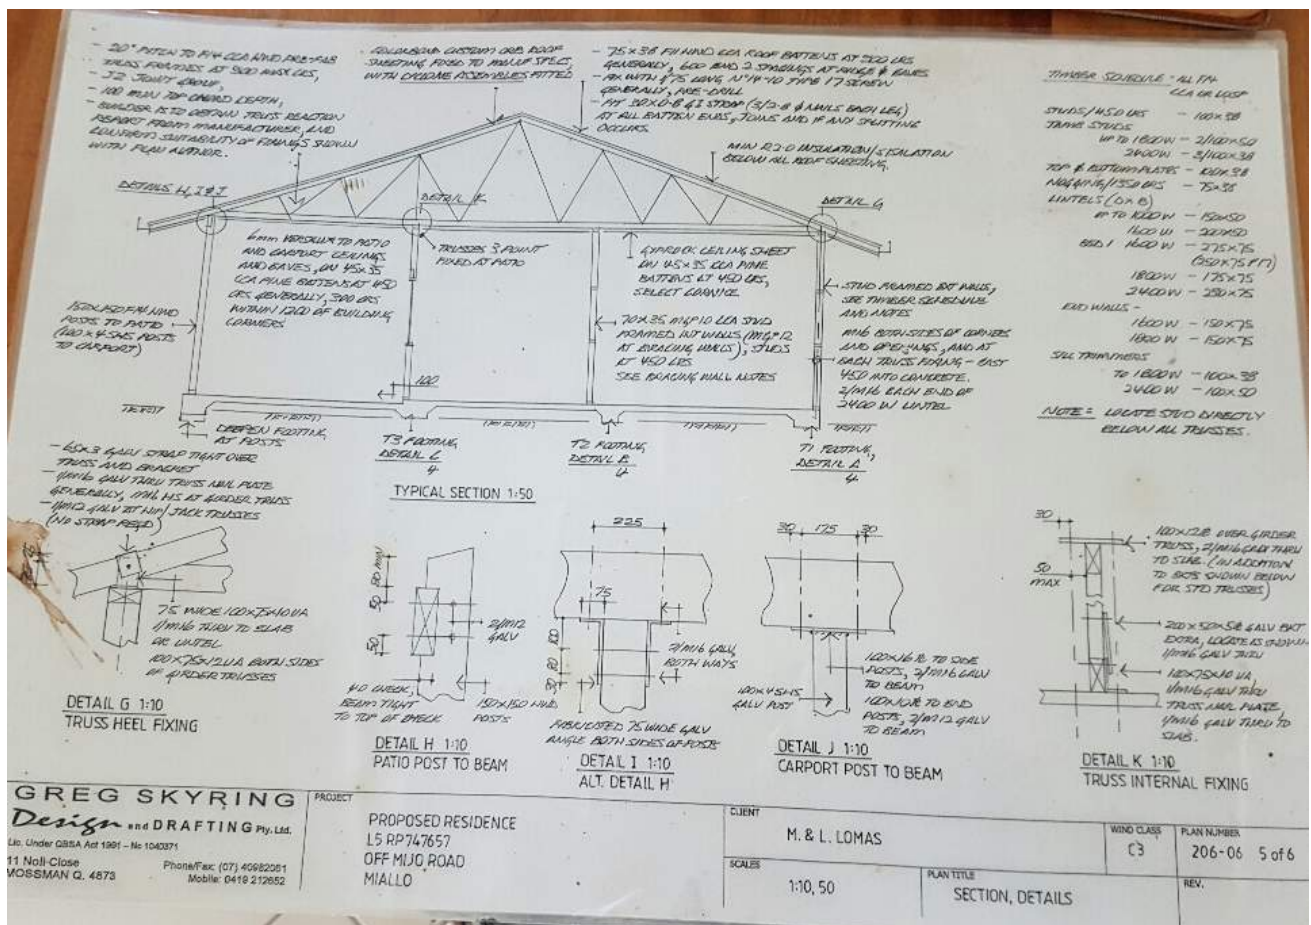 - 20° PITCH TO F14 CCA HWD PRE-FAB
TRUSS FRAMES AT 900 MAX CRS,
- J2 JOINT GROUP,
- 100 MIN TOP CHORD DEPTH,
- BUILDER IS TO OBTAIN TRUSS REACTION
REPORT FROM MANUFACTURER, AND
CONFIRM SUITABILITY OF FIXINGS SHOWN
WITH PLAN AUTHOR.
COLORBOND CUSTOM ORB ROOF
SHEETING FIXED TO MANUF SPECS,
WITH CYCLONE ASSEMBLIES FITTED
- 75x38 F11 HWD CCA ROOF BATTENS AT 900 CRS
GENERALLY, 600 END 2 SPACINGS AT RIDGE & EAVES
- FIX WITH 1/75 LONG Nº14-10 TYPE 17 SCREW
GENERALLY, PRE-DRILL
- FIT 30x0.8 GI STRAP (3/2.8 Ø NAILS EACH LEG)
AT ALL BATTEN ENDS, JOINS AND IF ANY SPLITTING
OCCURS.
MIN R2.0 INSULATION/SISALATION
BELOW ALL ROOF SHEETING.
DETAILS H, I & J
DETAIL K
DETAIL G
6mm VERSILUX TO PATIO
AND CARPORT CEILINGS
AND EAVES, ON 45x35
CCA PINE BATTENS AT 450
CRS GENERALLY, 300 CRS
WITHIN 1200 OF BUILDING
CORNERS
TRUSSES 3 POINT
FIXED AT PATIO
GYPROCK CEILING SHEET
ON 45x35 CCA PINE
BATTENS AT 450 CRS,
SELECT CORNICE
150x150 F14 HWD
POSTS TO PATIO
(100x4 SHS POSTS
TO CARPORT)
70x35 MGP10 CCA STUD
FRAMED INT WALLS (MGP12
AT BRACING WALLS), STUDS
AT 450 CRS
SEE BRACING WALL NOTES
STUD FRAMED EXT WALLS,
SEE TIMBER SCHEDULE
AND NOTES
M16 BOTH SIDES OF CORNERS
AND OPENINGS, AND AT
EACH TRUSS FIXING - CAST
450 INTO CONCRETE.
2/M16 EACH END OF
2400 W LINTEL
100
DEEPEN FOOTING
AT POSTS
T3 FOOTING,
DETAIL C
4
T2 FOOTING
DETAIL B
4
T1 FOOTING,
DETAIL A
4
TYPICAL SECTION 1:50
TIMBER SCHEDULE - ALL F14
CCA OR LOSP
STUDS/450 CRS - 100x38
JAMB STUDS
UP TO 1800W - 2/100x50
2400W - 3/100x38
TOP & BOTTOM PLATES - 100x38
NOGGING/1350 CRS - 75x38
LINTELS (DxB)
UP TO 1000 W - 150x50
1600 W - 200x50
BED 1 1600 W - 275x75
(250x75 F17)
1800W - 175x75
2400W - 250x75
END WALLS -
1600 W - 150x75
1800 W - 150x75
SILL TRIMMERS
TO 1800W - 100x38
2400W - 100x50
NOTE = LOCATE STUD DIRECTLY
BELOW ALL TRUSSES.
- 65x3 GALV STRAP TIGHT OVER
TRUSS AND BRACKET
- 1/M16 GALV THRU TRUSS NAIL PLATE
GENERALLY, M16 HS AT GIRDER TRUSS
- 1/M12 GALV AT HIP/JACK TRUSSES
(NO STRAP REQD)
75 WIDE 100x75x10 UA
1/M16 THRU TO SLAB
OR LINTEL
100x75x12 UA BOTH SIDES
OF GIRDER TRUSSES
DETAIL G 1:10
TRUSS HEEL FIXING
80 MIN
50
50
2/M12
GALV
40 CHECK,
BEAM TIGHT
TO TOP OF CHECK
150x150 HWD
POSTS
DETAIL H 1:10
PATIO POST TO BEAM
225
75
100
80
50
2/M16 GALV,
BOTH WAYS
FABRICATED 75 WIDE GALV
ANGLE BOTH SIDES OF POSTS
DETAIL I 1:10
ALT. DETAIL H
30 175 30
100x4 SHS
GALV POST
100x16 PL TO SIDE
POSTS, 2/M16 GALV
TO BEAM
100x10 PL TO END
POSTS, 2/M12 GALV
TO BEAM
DETAIL J 1:10
CARPORT POST TO BEAM
30
50
MAX
100x12 PL OVER GIRDER
TRUSS, 2/M16 GALV THRU
TO SLAB. (IN ADDITION
TO BKTS SHOWN BELOW
FOR STD TRUSSES)
200x50x5 PL GALV BKT
EXTRA, LOCATE AS SHOWN
1/M16 GALV THRU
100x75x10 UA
1/M16 GALV THRU
TRUSS NAIL PLATE,
1/M16 GALV THRU TO
SLAB.
DETAIL K 1:10
TRUSS INTERNAL FIXING
GREG SKYRING
Design and DRAFTING Pty. Ltd.
Lic. Under QBSA Act 1991 - No 1040371
11 Noli Close
MOSSMAN Q. 4873
Phone/Fax: (07) 40982061
Mobile: 0419 212652
PROJECT
PROPOSED RESIDENCE
L5 RP747657
OFF MIJO ROAD
MIALLO
CLIENT
M. & L. LOMAS
WIND CLASS
C3
PLAN NUMBER
206-06 5 of 6
SCALES
1:10, 50
PLAN TITLE
SECTION, DETAILS
REV.